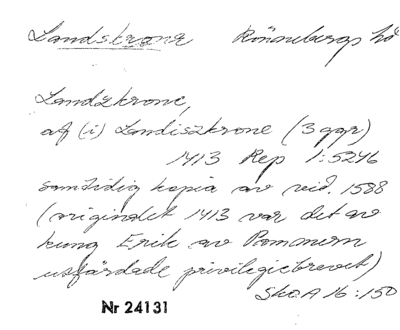 Landskrona Rönnebergs hd
Landzkrone,
af (i) Landiszkrone (3 ggr)
1413 Rep 1:5246
samtidig kopia av vid. 1588
(originalet 1413 var det av
kung Erik av Pommern
utfärdade privilegiebrevet)
SkOA 16:150
Nr 24131